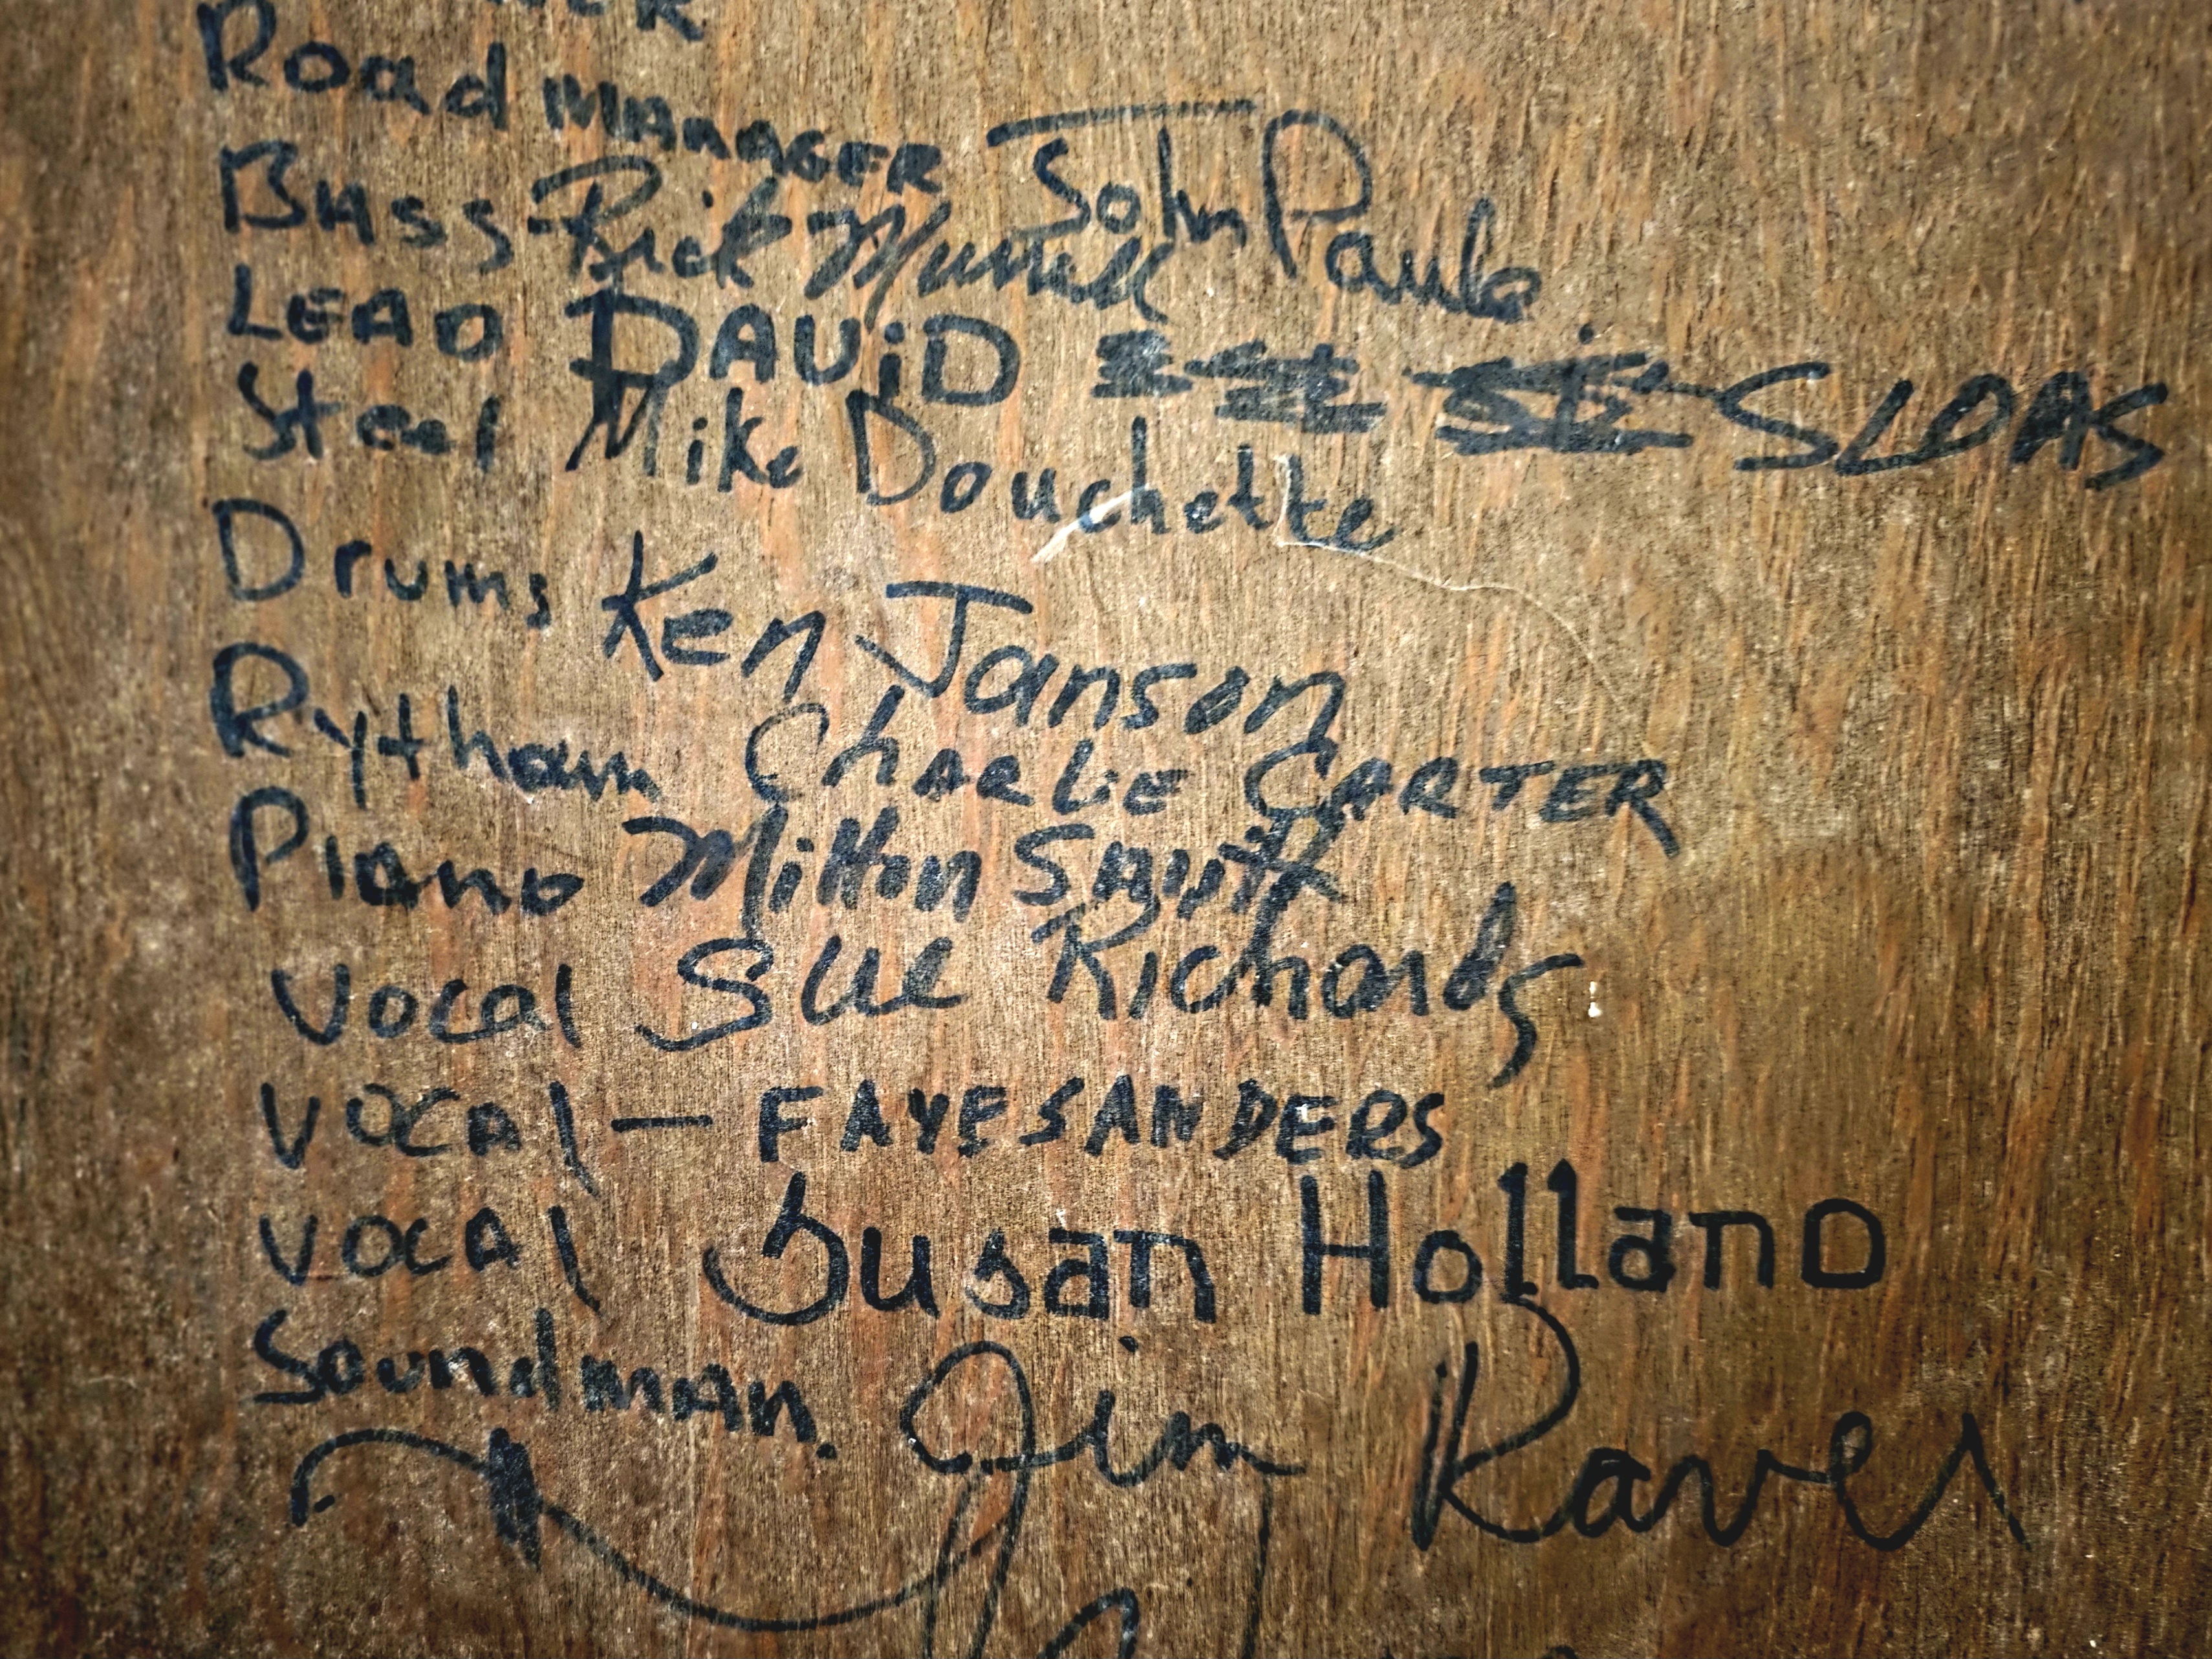 Road MANAGER John Paula.
Bass Rick
LEAD DAViD SLOAS
Steel Mike Douchette
Drums Ken Janson
Rytham CHARLiE CARTER
Piano Milton Smith
Vocal Sue Richards
VOCAl — FAYE SANDERS
VOCAl Susan HollanD
Soundman. Jim Ravel